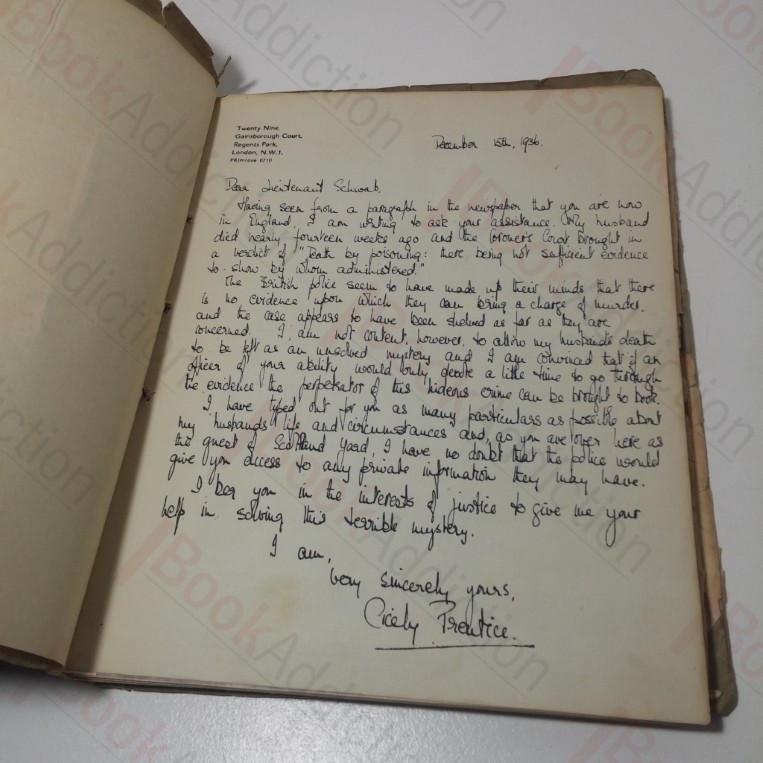 Twenty Nine,
Gainsborough Court,
Regents Park,
London, N.W.1.
PRImrose 0210
December 15th, 1936.
Dear Lieutenant Schwab,
Having seen from a paragraph in the newspaper that you are now
in England, I am writing to ask your assistance. My husband
died nearly fourteen weeks ago and the Coroner's Court brought in
a verdict of "Death by poisoning: there being not sufficient evidence
to show by whom administered."
The British police seem to have made up their minds that there
is no evidence upon which they can bring a charge of murder,
and the case appears to have been shelved as far as they are
concerned. I am not content, however, to allow my husband's death
to be left as an unsolved mystery and I am convinced that if an
officer of your ability would only devote a little time to go through
the evidence the perpetrator of this hideous crime can be brought to book.
I have typed out for you as many particulars as possible about
my husband's life and circumstances and, as you are over here as
the guest of Scotland Yard, I have no doubt that the police would
give you access to any private information they may have.
I beg you in the interests of justice to give me your
help in solving this terrible mystery.
I am,
Very sincerely yours,
Cicely Prentice.
BookAddiction